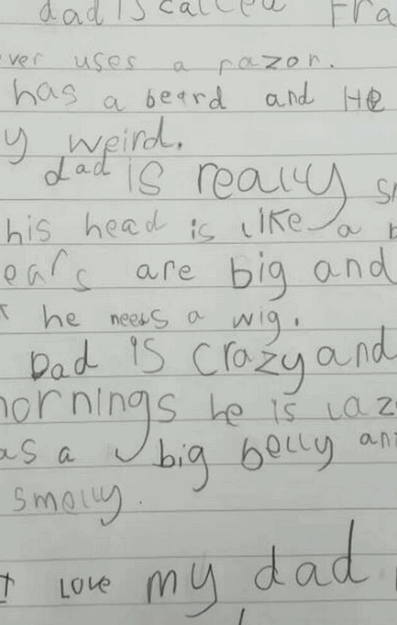 dad is called Fra
ver uses a razor.
has a beard and He
y weird.
dad is really s
his head is like a b
ears are big and
he needs a wig.
Dad is crazy and
mornings he is laz
as a big belly an
smelly.
t love my dad